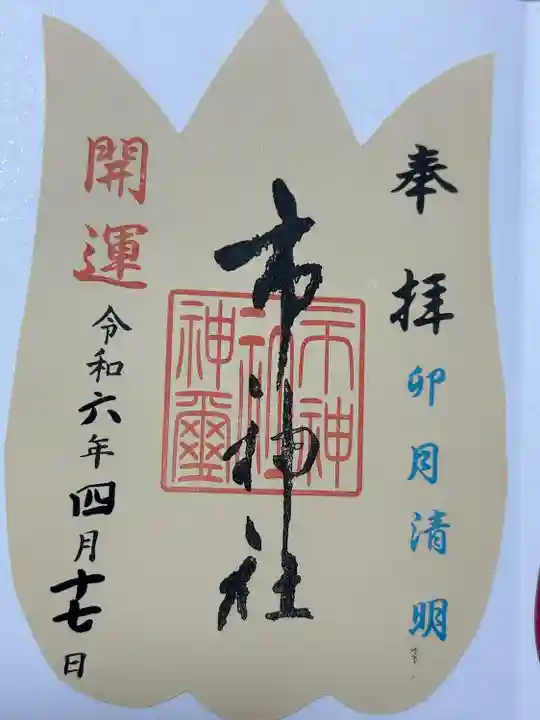 奉拝
卯月清明
市神社
市神
社
神璽
開運
令和六年四月十七日